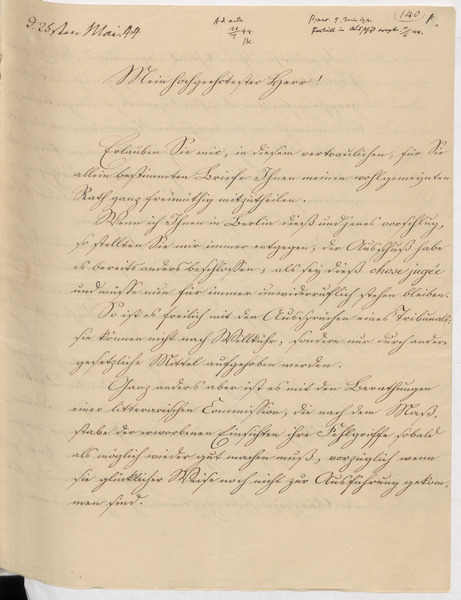 d. 25sten Mai 44
Ad acta
140
Mein hochgeehrtester Herr!
Erlauben Sie mir, in diesem vertraulichen, für Sie
allein bestimmten Briefe Ihnen meinen wohlgemeynten
Rath ganz freimüthig mitzutheilen.
Wenn ich Ihnen in Berlin dieß und jenes vorschlug,
so stellten Sie mir immer entgegen, der Ausschuß habe
es bereits anders beschlossen; als sey dieß chose jugée
und müsse nun für immer unwiderruflich stehen bleiben.
So ist es freilich mit den Aussprüchen eines Tribunals:
sie können nicht nach Willkühr, sondern nur durch andere
gesetzliche Mittel aufgehoben werden.
Ganz anders aber ist es mit den Berathungen
einer litterarischen Commission, die nach dem Maß-
stabe der erworbenen Einsichten ihre Fehlgriffe sobald
als möglich wieder gut machen muß, vorzüglich wenn
sie glücklicher Weise noch nicht zur Ausführung gekom-
men sind.